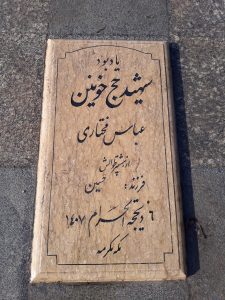 یادبود
شهید حج خونین
عباس مختاری
فرزند: حسین
۶ ذیحجة الحرام ۱۴۰۷
مکه مکرمه